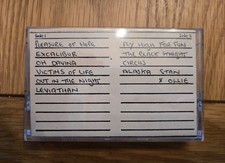 SIDE 1
PLEASURE OF HOPE
EXCALIBUR
OH DAVINA
VICTIMS OF LIFE
OUT IN THE NIGHT
LEVIATHAN
SIDE 2
FLY HIGH FOR FUN
THE BLACK KNIGHT
CIRCUS
ALASKA STAN
& OLLIE